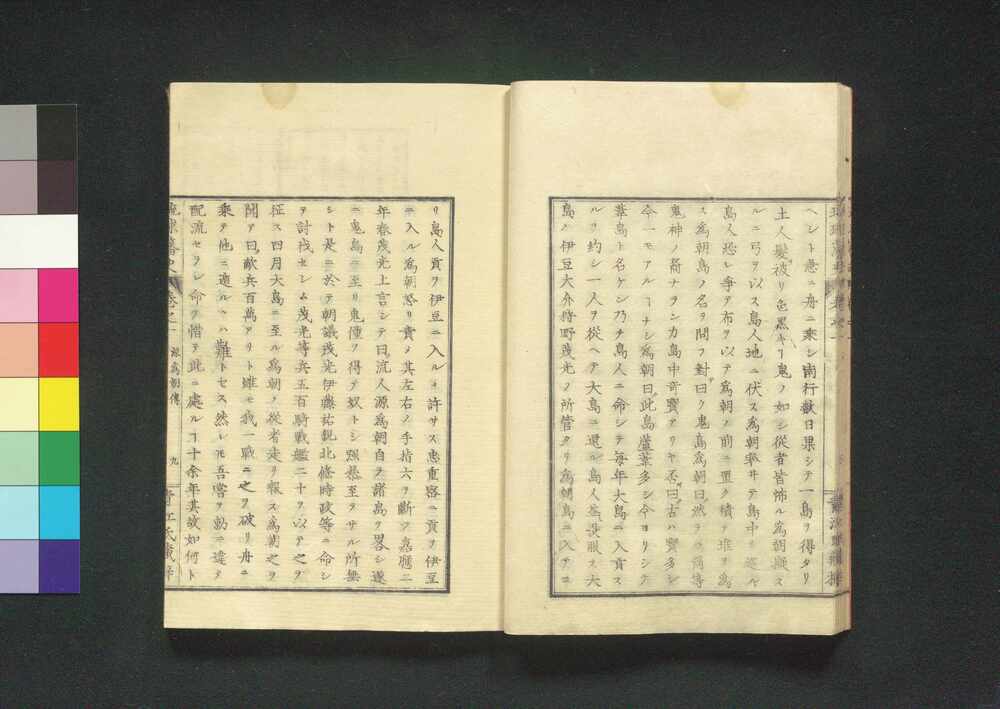 ヘント急ニ舟ニ乗シ南行数日果シテ一島ヲ得タリ
土人髪被リ色黒キ丨鬼ノ如シ從者皆怖ル為朝顧ス
ルニ弓ヲ以ス島人地ニ伏ス為朝率ヰテ島中ヲ巡ル
島人恐レ争テ布ヲ以テ為朝ノ前ニ置ク積テ堆ヲ為
ス為朝島ノ名ヲ問フ對曰ク鬼島為朝曰然ラハ爾等
鬼神ノ裔ナランカ島中奇寶アリヤ否曰古ハ寶多シ
今一モアルヿナシ為朝曰此島蘆葦多シ今ヨリシテ
葦島ト名ケン乃チ島人ニ命シテ毎年大島ニ入貢ス
ルヲ約シ一人ヲ從ヘテ大島ニ還ル島人益説服ス大
島ノ伊豆大介狩野茂光ノ所管タリ為朝島ニ入テヨ
リ島人貢ヲ伊豆ニ入ルヽヲ許サス忠重密ニ貢ヲ伊豆
ニ入ル為朝怒リ責メ其左右ノ手指六ヲ斷ツ嘉應二
年春茂光上言シテ曰流人源為朝自ラ諸島ヲ畧シ遂
ニ鬼島ニ至リ鬼僮ヲ得テ奴トシ暴至ラサル所無
シト是ニ於テ朝議茂光伊藤祐親北條時政等ニ命シ
ヲ討伐セシム茂光等兵五百騎戰艦二十ヲ以テ之ヲ
征ス四月大島ニ至ル為朝ノ從者走リ報ス為朝之ヲ
聞テ曰敵兵百萬アリト雖モ我一戰ニ之ヲ破リ舟ニ
乗テ他ニ適ルハ難トセス然レモ吾嘗テ勅ニ違ヲ
配流セラレ命ヲ惜テ此ニ處ルヿ十余年其故如何ト
琉球藩史 卷之一 源為朝傳 九 青江氏藏梓